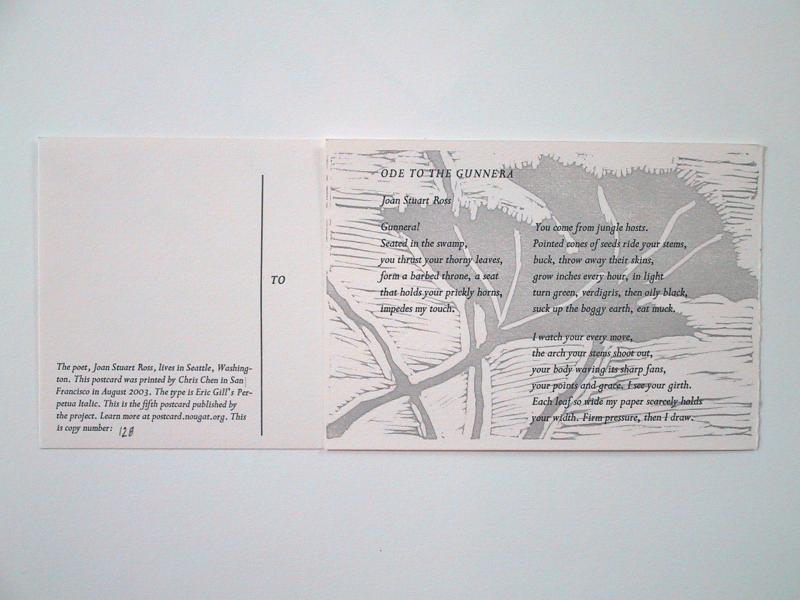 TO
The poet, Joan Stuart Ross, lives in Seattle, Washing-
ton. This postcard was printed by Chris Chen in San
Francisco in August 2003. The type is Eric Gill's Per-
petua Italic. This is the fifth postcard published by
the project. Learn more at postcard.nougat.org. This
is copy number: 128
ODE TO THE GUNNERA
Joan Stuart Ross
Gunnera!
Seated in the swamp,
you thrust your thorny leaves,
form a barbed throne, a seat
that holds your prickly horns,
impedes my touch.
You come from jungle hosts.
Pointed cones of seeds ride your stems,
buck, throw away their skins,
grow inches every hour, in light
turn green, verdigris, then oily black,
suck up the boggy earth, eat muck.
I watch your every move,
the arch your stems shoot out,
your body waving its sharp fans,
your points and grace. I see your girth.
Each leaf so wide my paper scarcely holds
your width. Firm pressure, then I draw.